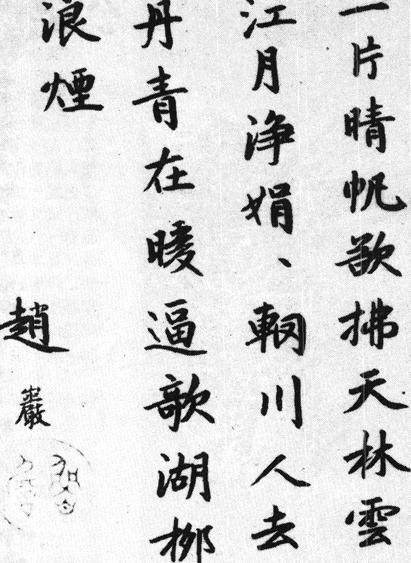 一片晴帆欲拂天林雲
江月浄娟、輞川人去
丹青在暖逼歌湖柳
浪煙
趙巖